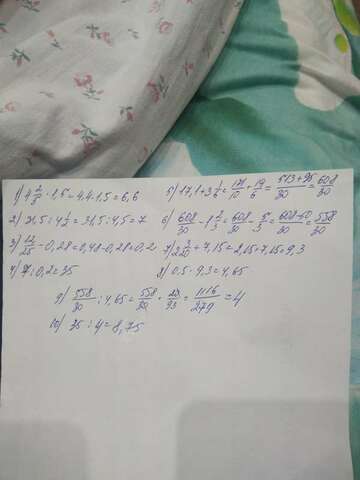 1) 4 2/5 · 1,5 = 4,4 · 1,5 = 6,6
2) 31,5 : 4 1/2 = 31,5 : 4,5 = 7
3) 12/25 - 0,28 = 0,48 - 0,28 = 0,2
4) 7 : 0,2 = 35
5) 17,1 + 3 1/6 = 171/10 + 19/6 = 513+95/30 = 608/30
6) 608/30 - 1 2/3 = 608/30 - 5/3 = 608-50/30 = 558/30
7) 2 3/20 + 7,15 = 2,15 + 7,15 = 9,3
8) 0.5 · 9,3 = 4,65
9) 558/30 : 4,65 = 558/30 · 20/93 = 1116/279 = 4
10) 35 : 4 = 8,75